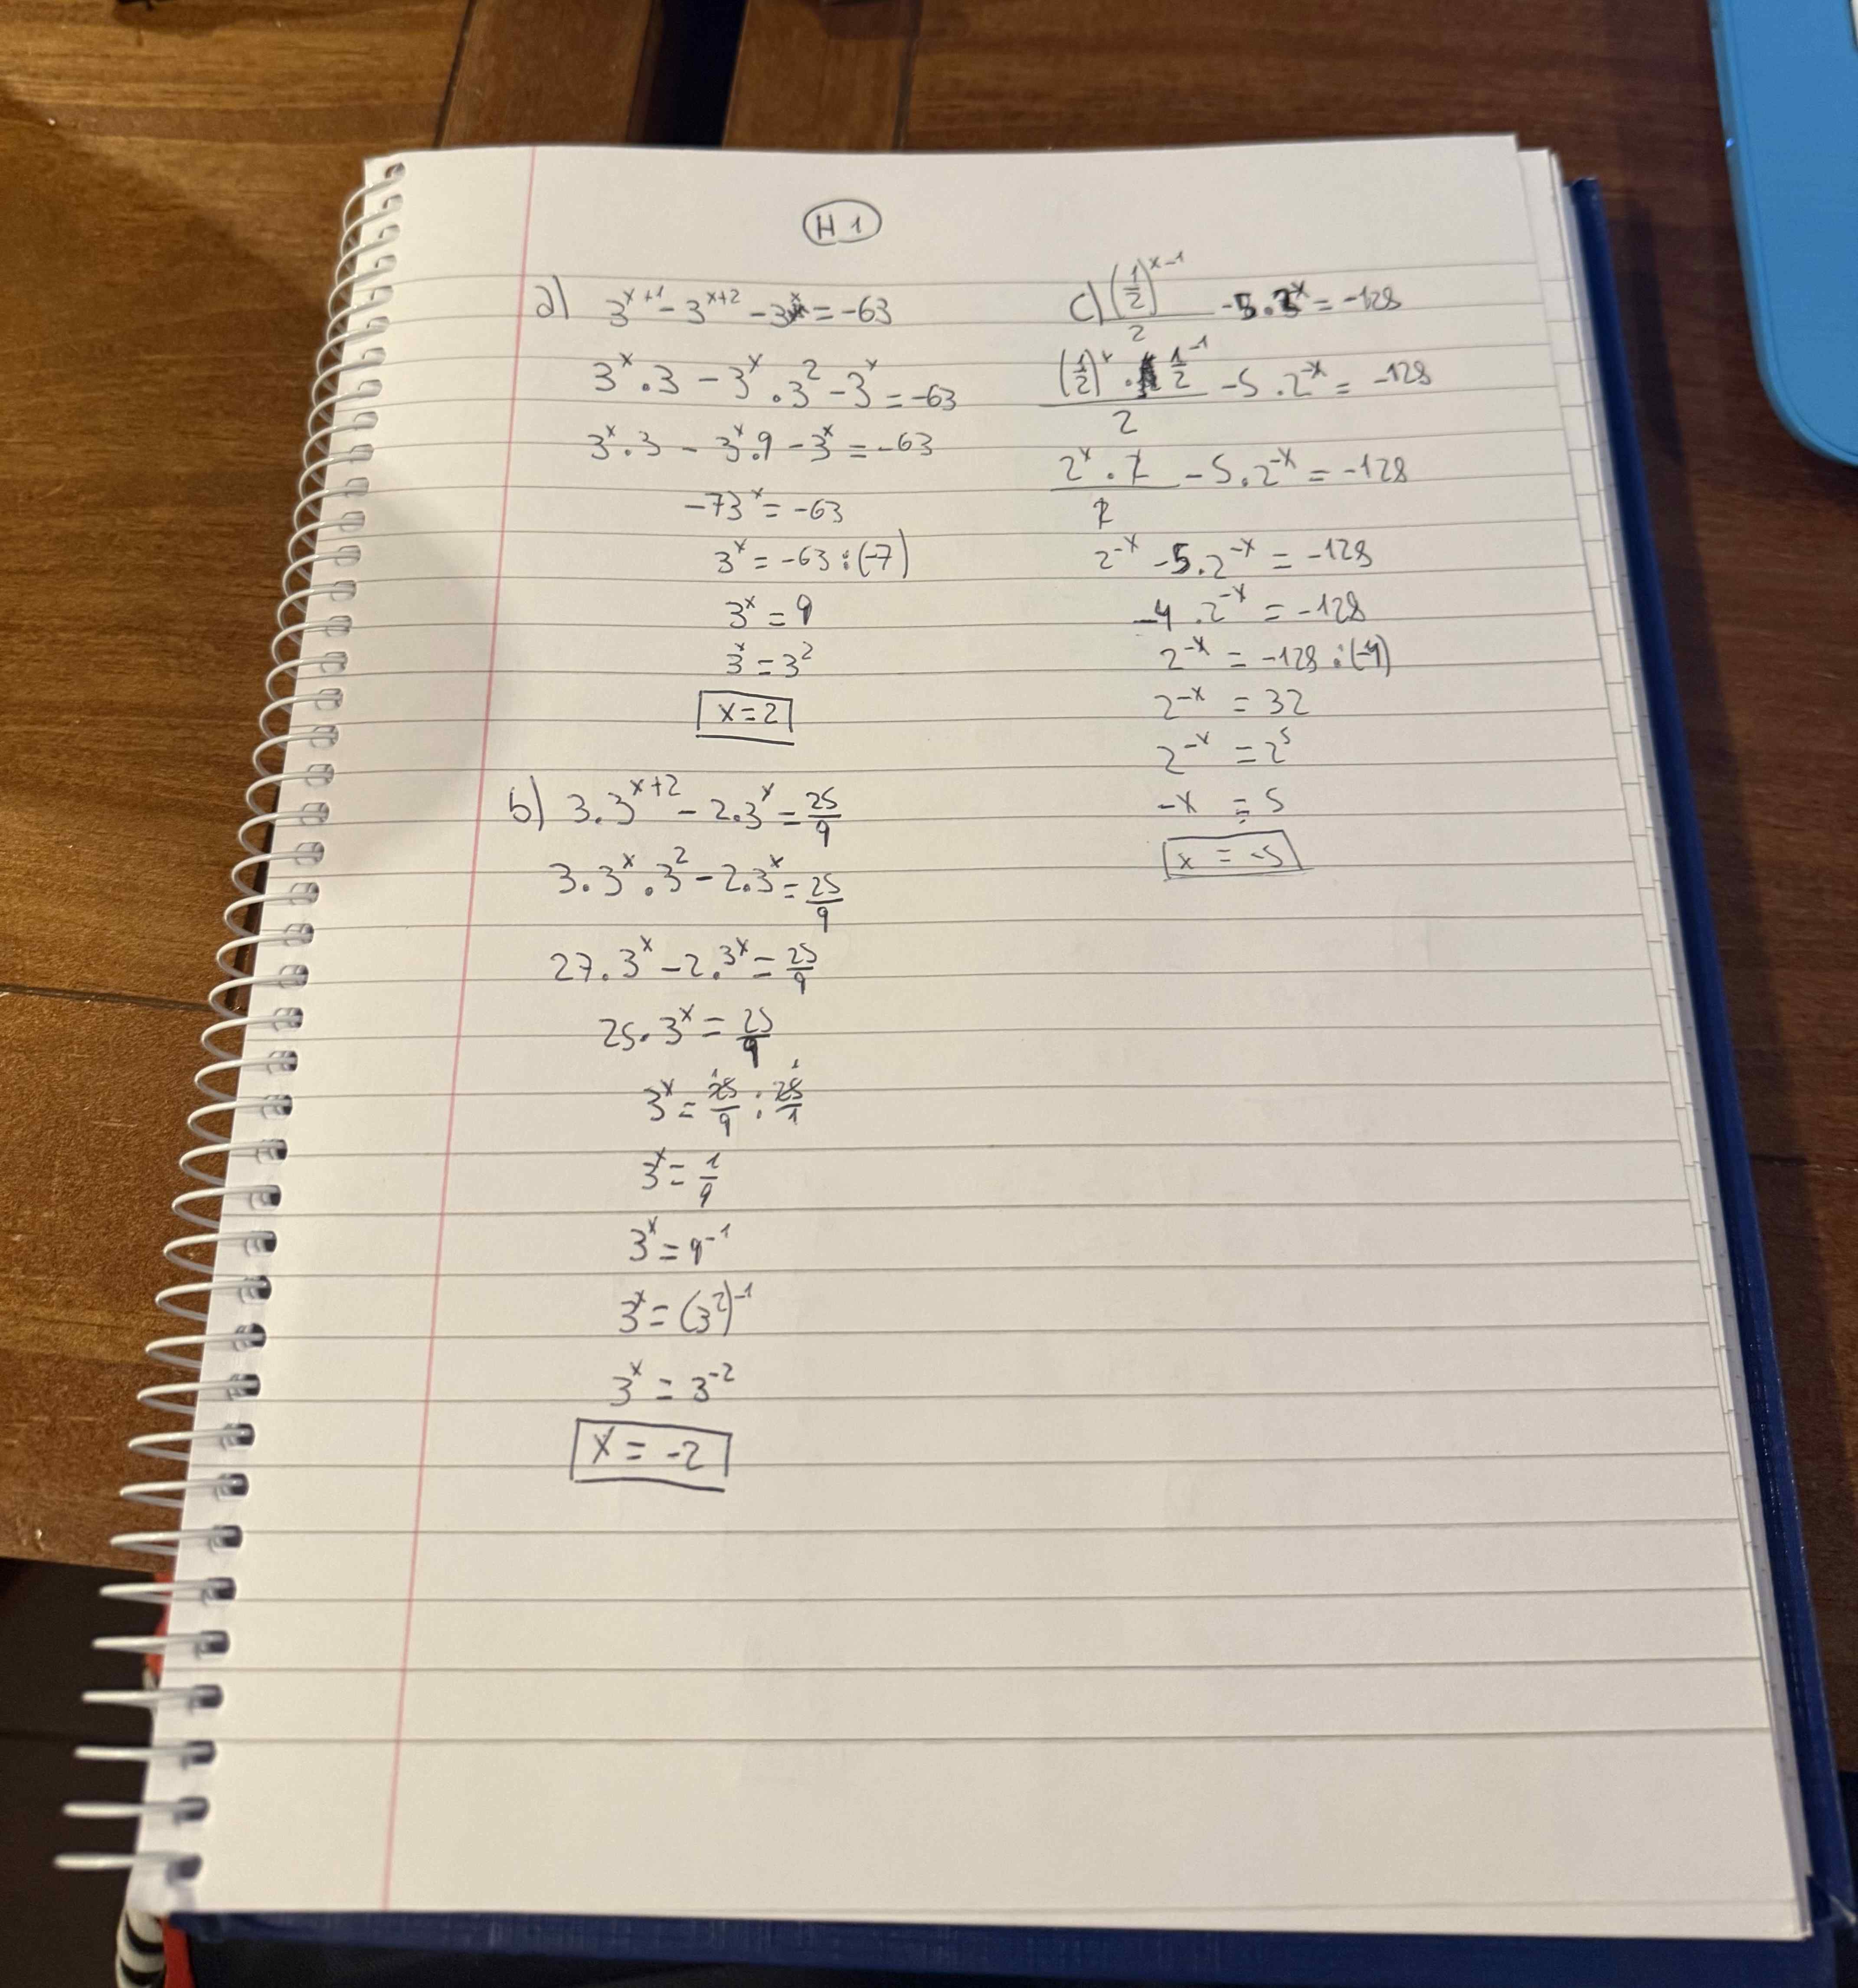 H 1
a) 3^(x+1) - 3^(x+2) - 3^x = -63
3^x . 3 - 3^x . 3^2 - 3^x = -63
3^x . 3 - 3^x . 9 - 3^x = -63
-73^x = -63
3^x = -63 : (-7)
3^x = 9
3^x = 3^2
x = 2
b) 3 . 3^(x+2) - 2 . 3^x = 25/9
3 . 3^x . 3^2 - 2 . 3^x = 25/9
27 . 3^x - 2 . 3^x = 25/9
25 . 3^x = 25/9
3^x = 25/9 : 25/1
3^x = 1/9
3^x = 9^-1
3^x = (3^2)^-1
3^x = 3^-2
x = -2
c) (1/2)^(x-1) / 2 - 5 . 2^x = -128
(1/2)^x . 1/2^-1 / 2 - 5 . 2^-x = -128
2^x . 2 / 2 - 5 . 2^-x = -128
2^-x - 5 . 2^-x = -128
-4 . 2^-x = -128
2^-x = -128 : (-4)
2^-x = 32
2^-x = 2^5
-x = 5
x = -5